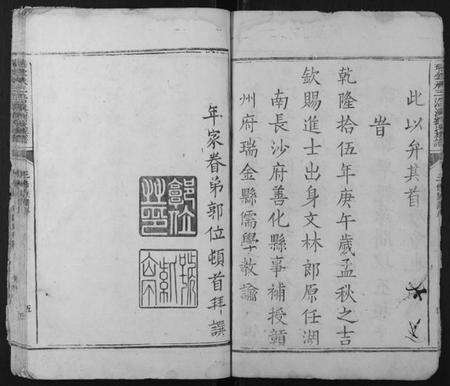 此以弁其首
旹
乾隆拾伍年庚午歲孟秋之吉
欽賜進士出身文林郎原任湖
南長沙府善化縣事補授贛
州府瑞金縣儒學教諭
年家眷弟郭位頓首拜譔
郭位
之印